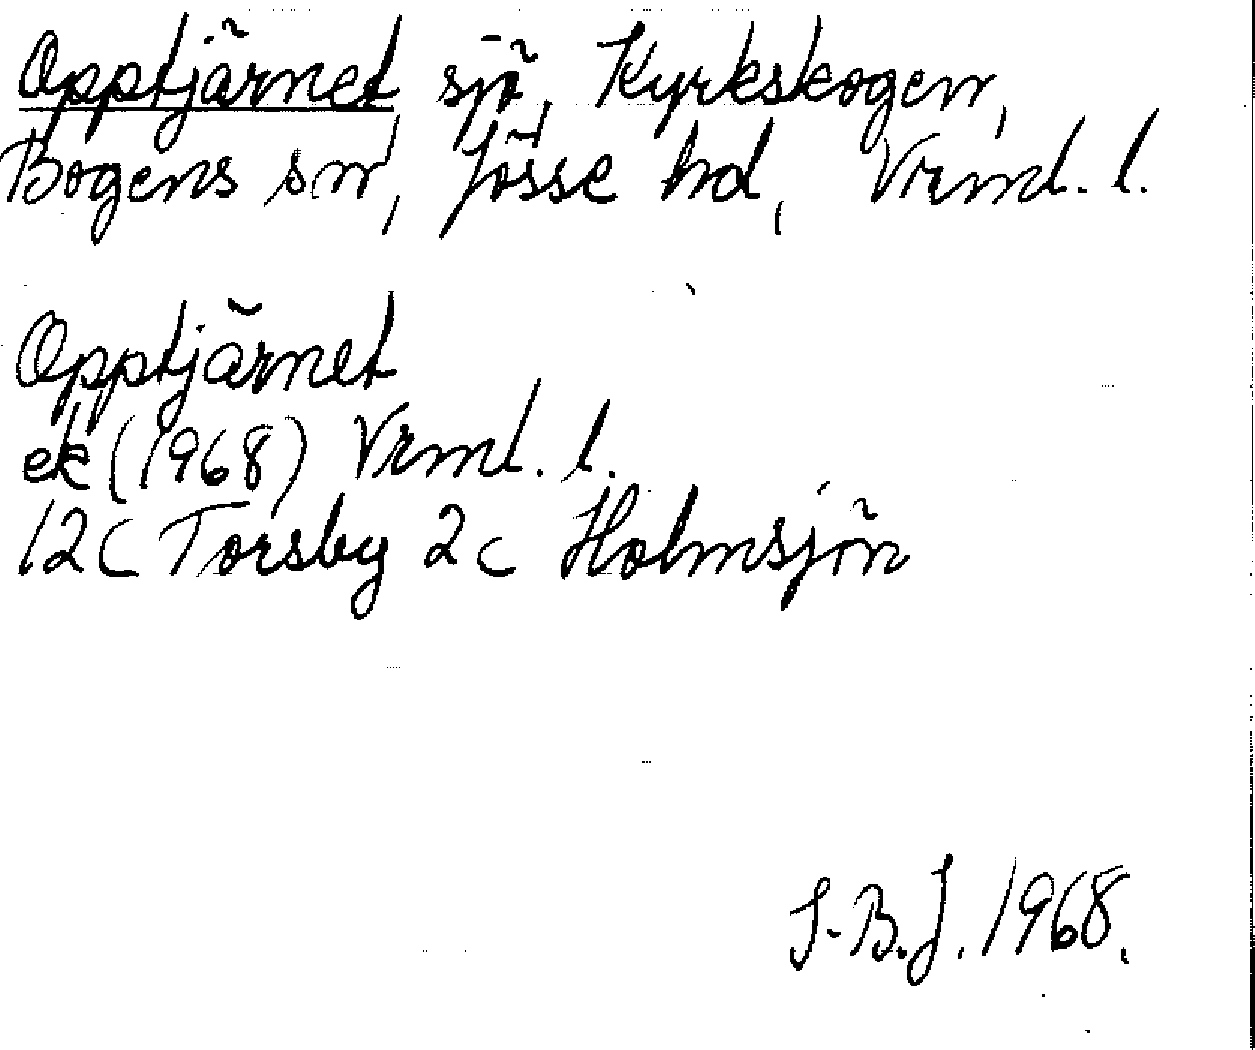 Opptjärnet sjö, Kyrkskogen,
Bogens sn, Jösse hd, Vrml. l.
Opptjärnet
ek (1968) Vrml. l.
12C Torsby 2c Holmsjön
S-B.J. 1968.